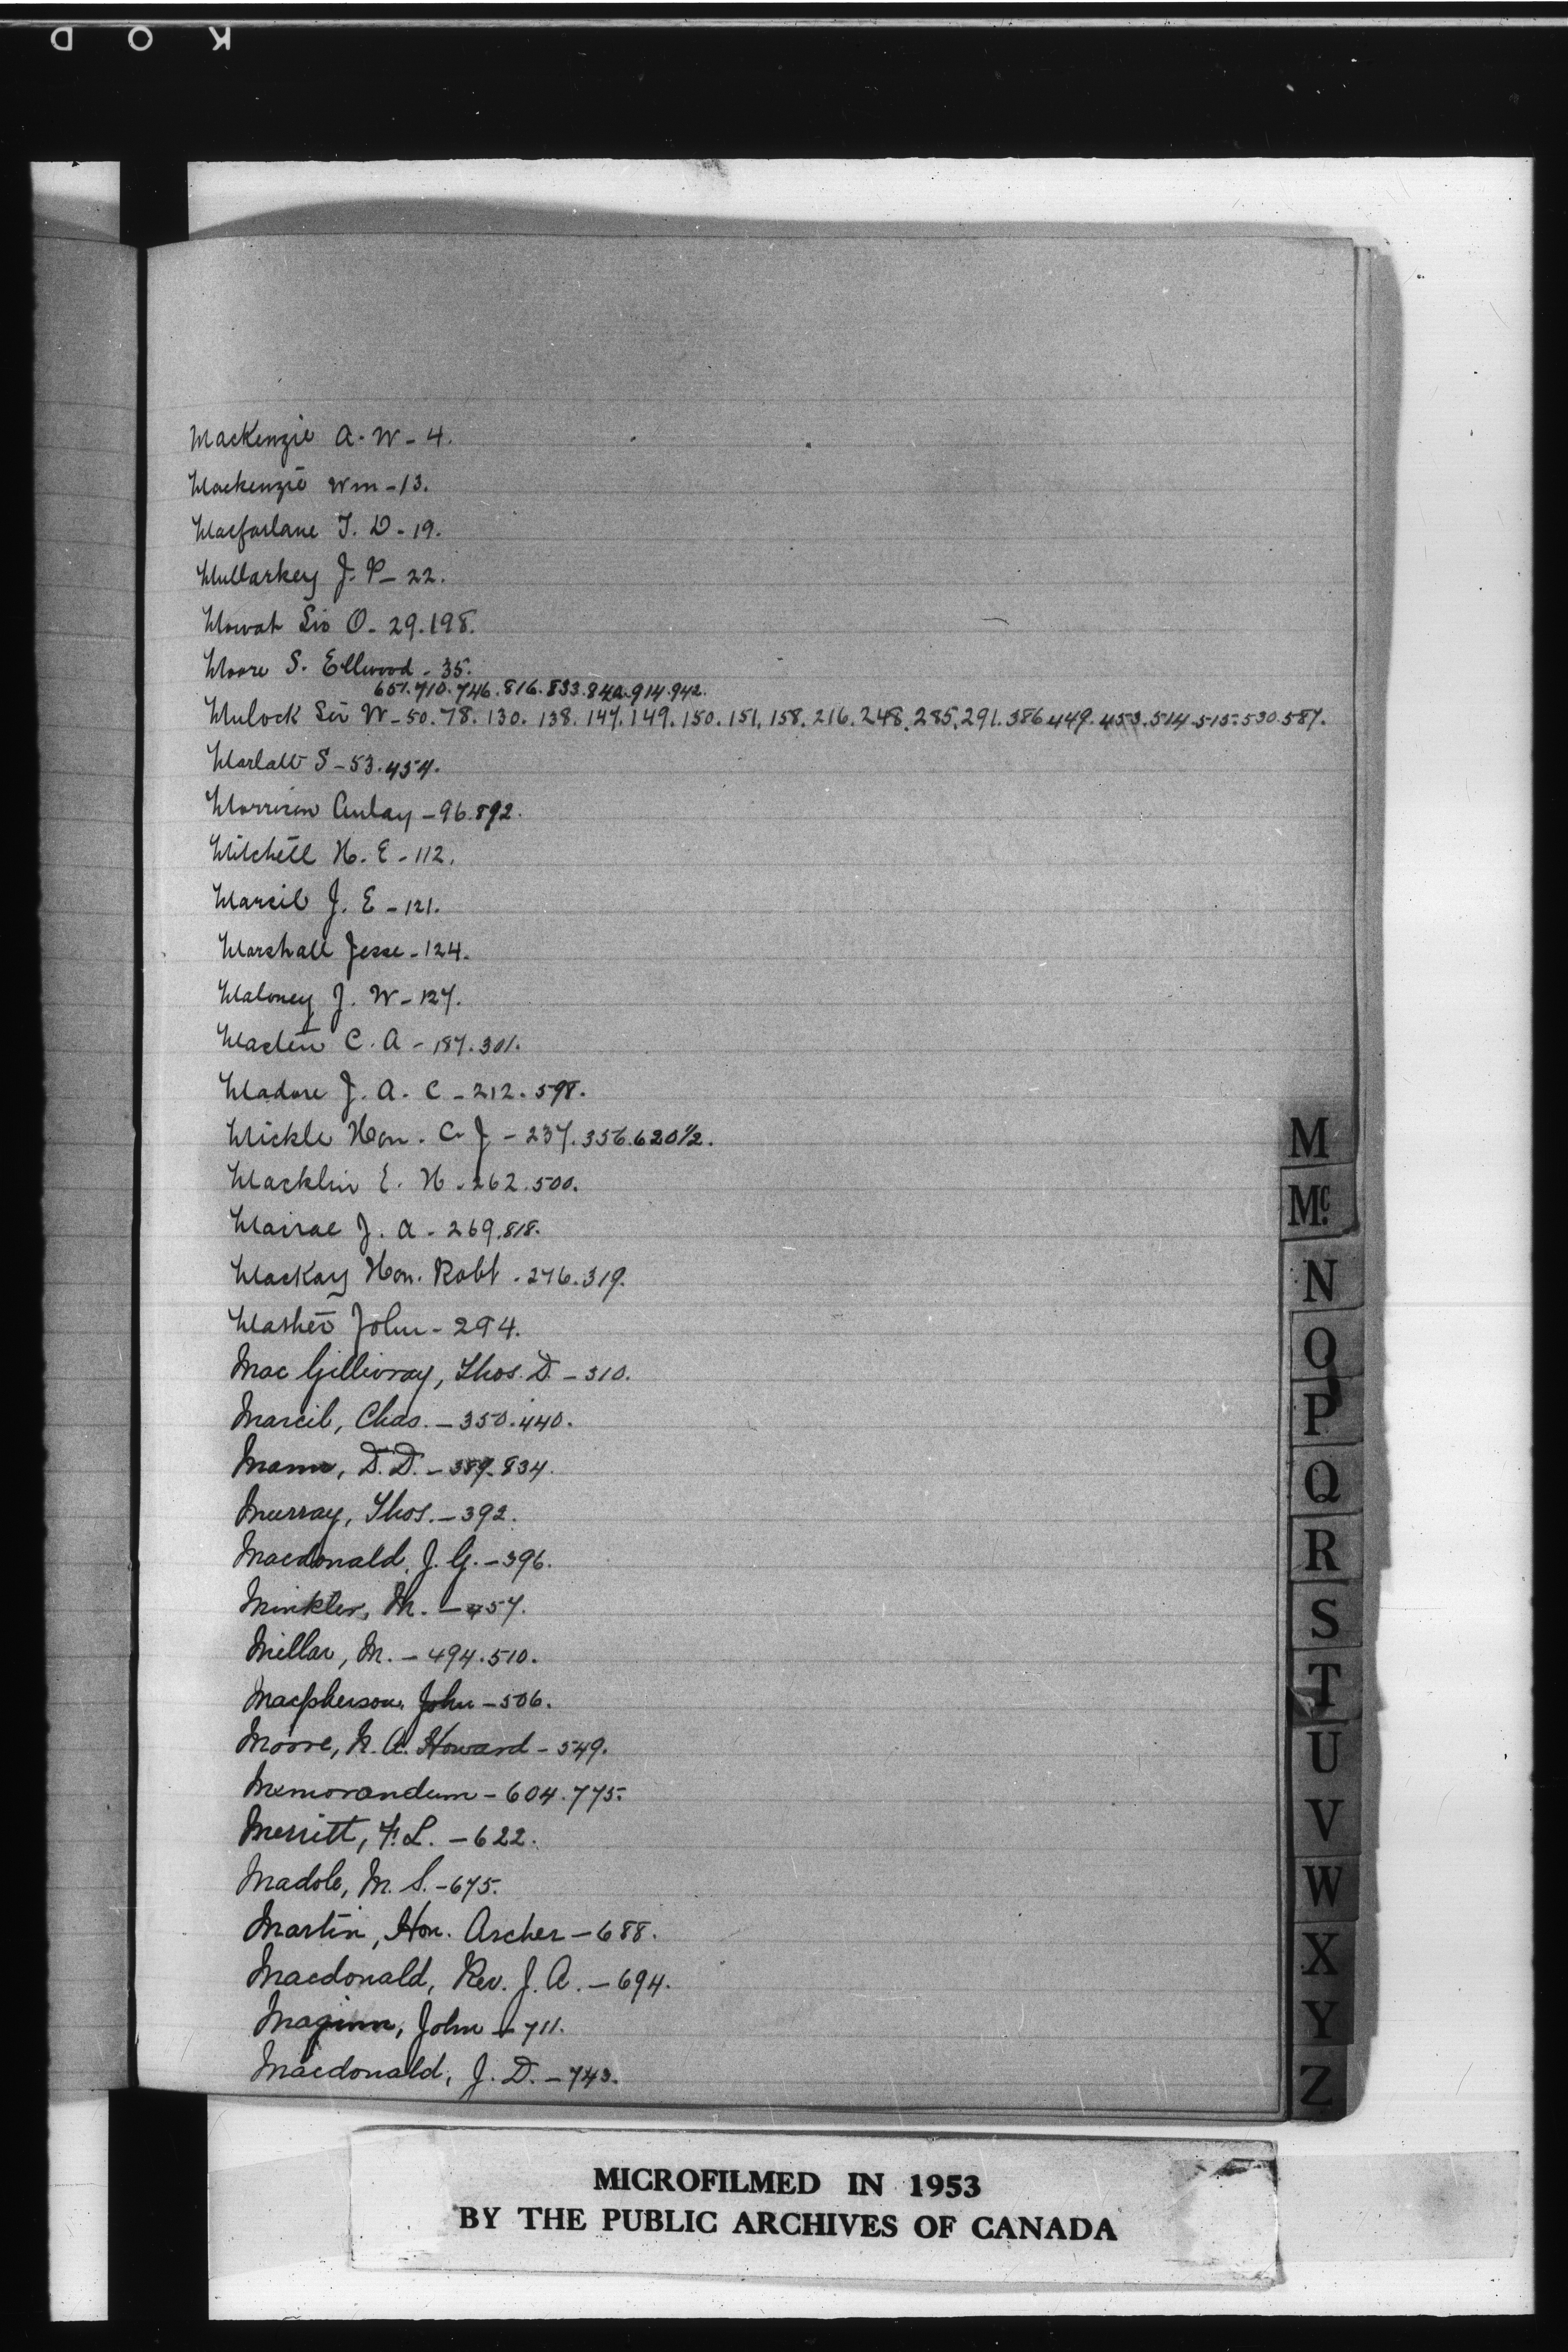 K O D
Mackenzie A. W - 4.
Mackenzie Wm - 13.
Macfarlane T. D - 19.
Mullarkey J. P - 22.
Mowat Sir O. 29.198.
Moore S. Ellwood - 35.
651.710.746.816.833.842.914.942.
Mulock Sir W - 50.78.130.138.147.149.150.151.158.216.248.285.291.386.449.453.514.515.530.587.
Marlatt S - 53.454.
Morrison Aulay - 96.892.
Mitchell H. E - 112.
Marcil J. E - 121.
Marshall Jesse - 124.
Maloney J. W - 127.
C. A - 187.301.
Madore J. A. C - 212.598.
Mickle Hon. C. J - 237.356.620 1/2.
Macklin E. H - 262.500.
J. A - 269.818.
Mackay Hon. Robt - 276.319.
John - 294.
MacGillivray, Thos. D. - 310.
Marcil, Chas. - 350.440.
Mann, D. D. - 389.834.
Murray, Thos. - 392.
Macdonald, J. G. - 396.
Minkler, M. - 457.
Millar, M. - 494.510.
Macpherson, John - 506.
Moore, N. A. Howard - 549.
Memorandum - 604.775.
Merritt, F. L. - 622.
Madole, M. S. - 675.
Martin, Hon. Archer - 688.
Macdonald, Rev. J. A. - 694.
Maginn, John - 711.
Macdonald, J. D. - 743.
M
Mc.
N
O
P
Q
R
S
T
U
V
W
X
Y
Z
MICROFILMED IN 1953
BY THE PUBLIC ARCHIVES OF CANADA